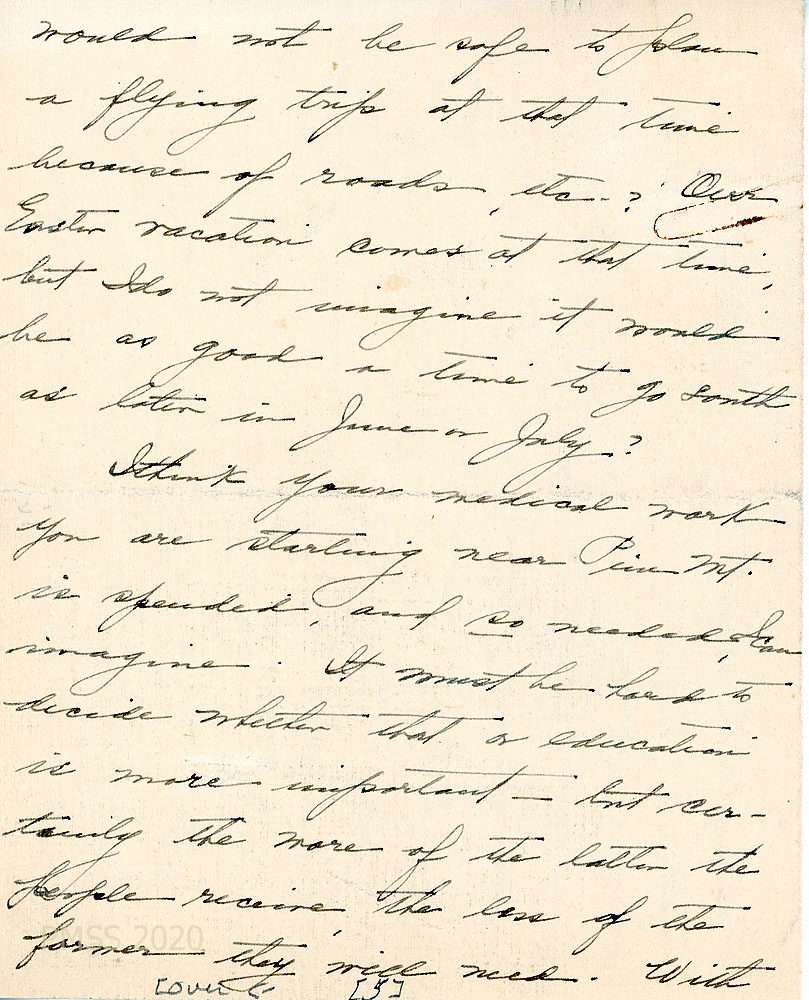 would not be safe to plan
a flying trip at that time
because of roads, etc.? Our
Easter vacation comes at that time,
but I do not imagine it would
be as good a time to go south
as later in June or July?
I think your medical work
you are starting near Pine Mt.
is spended, and so needed, I can
imagine. It must be hard to
decide whether that or education
is more important — but cer-
tainly the more of the latter the
people receive, the less of the
former they will need. With
PMSS 2020
[over [5]